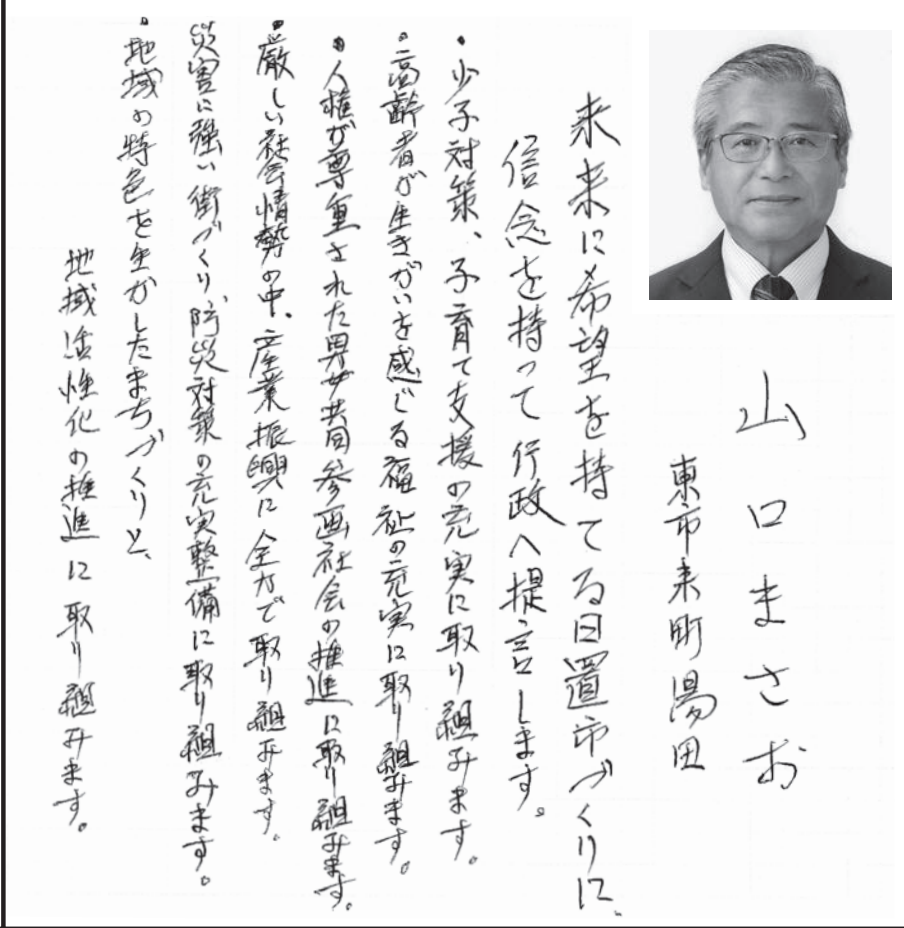 山口まさお
東市来町湯田
未来に希望を持てる日置市づくりに、
信念を持って行政へ提言します。
・少子対策、子育て支援の充実に取り組みます。
・高齢者が生きがいを感じる福祉の充実に取り組みます。
・人権が尊重された男女共同参画社会の推進に取り組みます。
・厳しい社会情勢の中、産業振興に全力で取り組みます。
災害に強い街づくり防災対策の充実整備に取り組みます。
・地域の特色を生かしたまちづくりと、
地域活性化の推進に取り組みます。